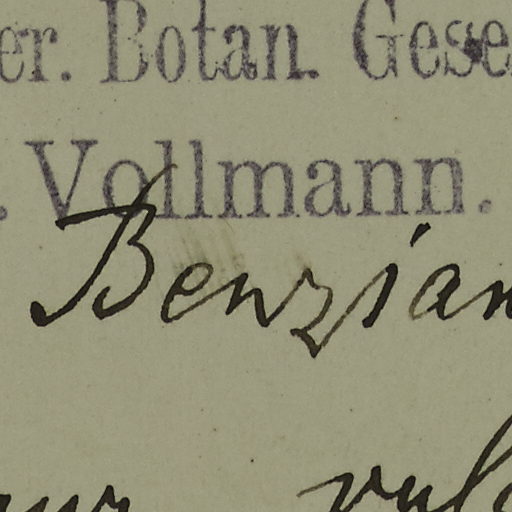 er. Botan. Gese
. Vollmann.
Benzian
vul